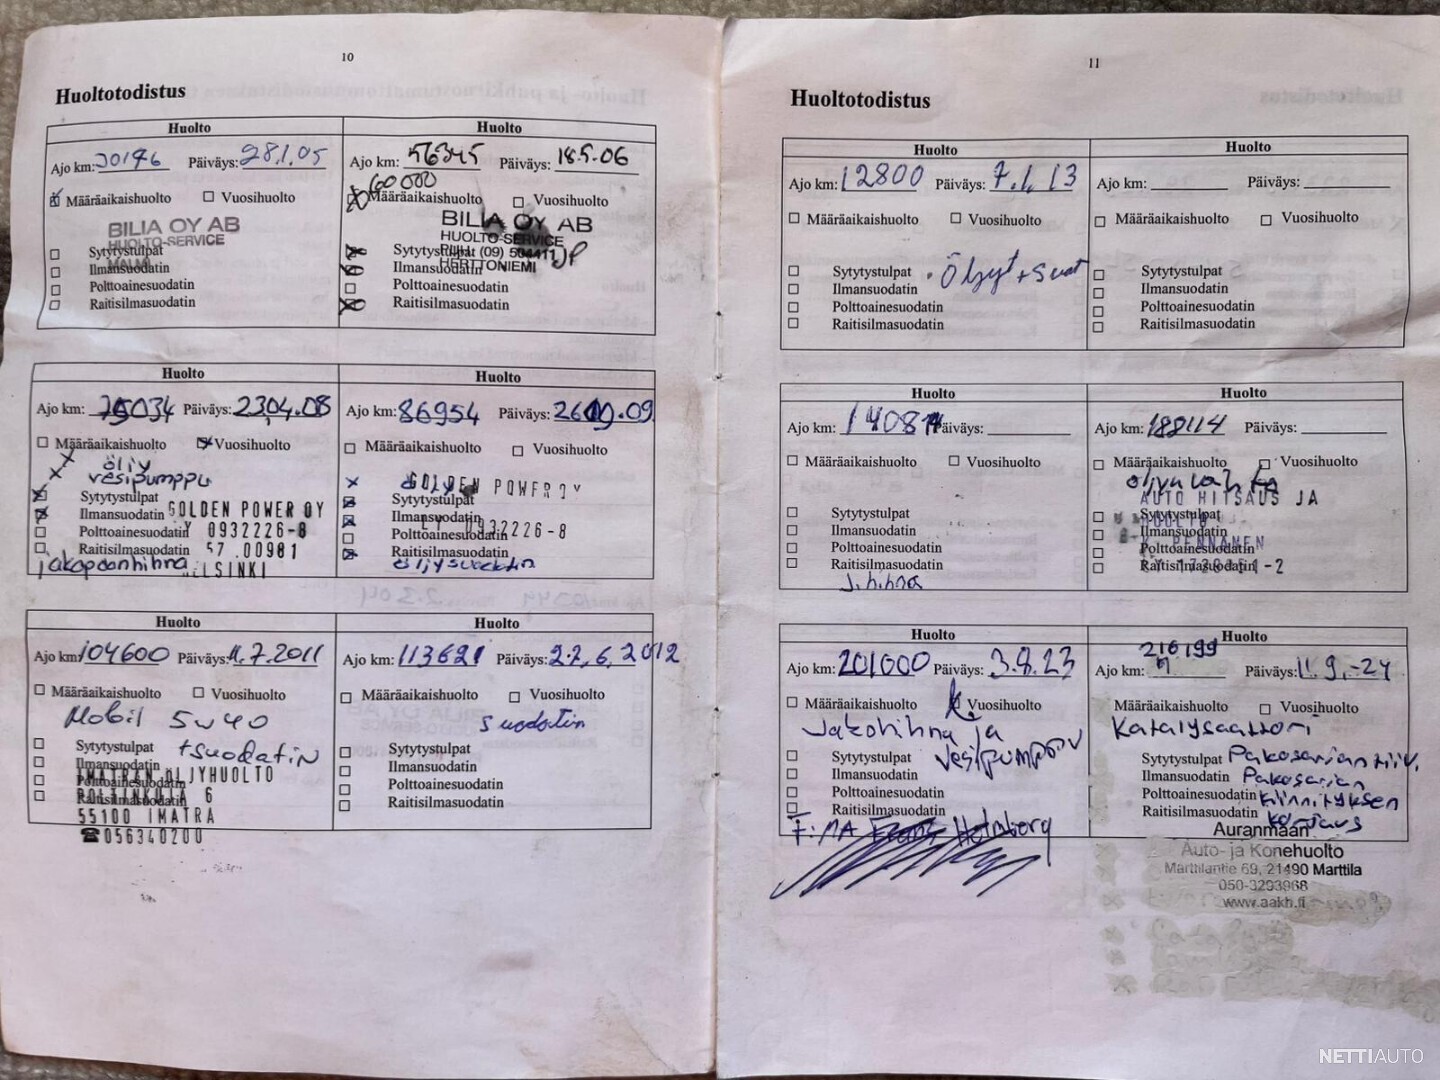 10
Huoltotodistus
Huolto
Ajo km: 30196 Päiväys: 28.1.05
Määräaikaishuolto Vuosihuolto
BILIA OY AB
HUOLTO-SERVICE
MALMI
Sytytystulpat
Ilmansuodatin
Polttoainesuodatin
Raitisilmasuodatin
Huolto
Ajo km: 56345 Päiväys: 18.5.06
60000
Määräaikaishuolto Vuosihuolto
BILIA OY AB
HUOLTO-SERVICE
Sytytystulpat
PUH (09)
JP
Ilmansuodatin
HERTTONIEMI
Polttoainesuodatin
Raitisilmasuodatin
Huolto
Ajo km: 75034 Päiväys: 23.04.08
Määräaikaishuolto Vuosihuolto
öljy
vesipumppu
Sytytystulpat
Ilmansuodatin GOLDEN POWER OY
Polttoainesuodatin Y 0932226-8
Raitisilmasuodatin 57 .00981
jakopäänhihna HELSINKI
Huolto
Ajo km: 86954 Päiväys: .09
Määräaikaishuolto Vuosihuolto
GOLDEN POWER OY
Sytytystulpat
Ilmansuodatin
LY 0932226-8
Polttoainesuodatin
Raitisilmasuodatin
öljysuodatin
Huolto
Ajo km: 104600 Päiväys: 11.7.2011
Määräaikaishuolto Vuosihuolto
Mobil 5w40
+suodatin
Sytytystulpat
Ilmansuodatin
IMATRAN ÖLJYHUOLTO
Polttoainesuodatin
6
Raitisilmasuodatin
55100 IMATRA
☎056340200
Huolto
Ajo km: 113621 Päiväys: 22.6.2012
Määräaikaishuolto Vuosihuolto
suodatin
Sytytystulpat
Ilmansuodatin
Polttoainesuodatin
Raitisilmasuodatin
11
Huoltotodistus
Huolto
Ajo km: 12800 Päiväys: 7.1.13
Määräaikaishuolto Vuosihuolto
Öljyt + suat
Sytytystulpat
Ilmansuodatin
Polttoainesuodatin
Raitisilmasuodatin
Huolto
Ajo km: Päiväys:
Määräaikaishuolto Vuosihuolto
Sytytystulpat
Ilmansuodatin
Polttoainesuodatin
Raitisilmasuodatin
Huolto
Ajo km: Päiväys:
Määräaikaishuolto Vuosihuolto
Sytytystulpat
Ilmansuodatin
Polttoainesuodatin
Raitisilmasuodatin
J.hihna
Huolto
Ajo km: 188114 Päiväys:
Määräaikaishuolto Vuosihuolto
AUTO HITSAUS JA
Sytytystulpat
HUOLTO
Ilmansuodatin
PENNANEN
Polttoainesuodatin
Raitisilmasuodatin
Huolto
Ajo km: 201000 Päiväys: 3.8.23
Määräaikaishuolto Vuosihuolto
Jakohihna ja
vesipumppu
Sytytystulpat
Ilmansuodatin
Polttoainesuodatin
Raitisilmasuodatin
F:MA Holmberg
Huolto
216199
Ajo km: Päiväys: 11.9.-24
Määräaikaishuolto Vuosihuolto
Katalysaattori
Sytytystulpat Pakosarjantiiv.
Ilmansuodatin Pakosarjan
Polttoainesuodatin kiinnityksen
Raitisilmasuodatin korjaus
Auranmaan
Auto- ja Konehuolto
Marttilantie 69, 21490 Marttila
050-3293968
www.aakh.fi
NETTIAUTO